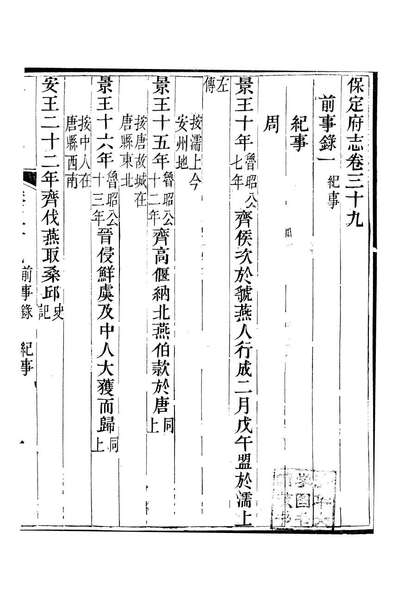 保定府志卷三十九
前事錄一 紀事
紀事
周
景王十年魯昭公七年齊侯次於虢燕人行成二月戊午盟於濡上
左傳 按濡上今安州地
景王十五年魯昭公十二年齊高偃納北燕伯款於唐同上
按唐故城在唐縣東北
景王十六年魯昭公十三年晉侵鮮虞及中人大獲而歸同上
按中人在唐縣西南
安王二十二年齊伐燕取桑邱史記
前事錄 紀事 一